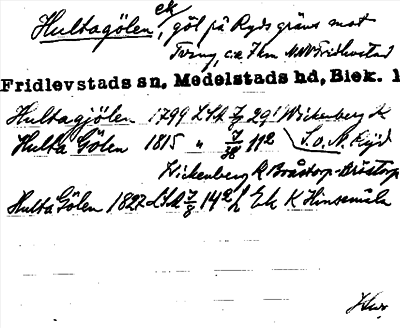 ek
Hultagölen, göl på Ryds gräns mot
Tving, ca 7 km NNV Fridlevstad
Fridlevstads sn, Medelstads hd, Blek. l
Hultagjölen 1799 LSA 7/8 29 Wickenberg K
Hulta Gölen 1815 " 7/38 112 S.o.N. Ryd
Wickenberg K Bråstorp-
Hulta Gölen 1827 LSA 7/8 142 Ek K Hinsemåla